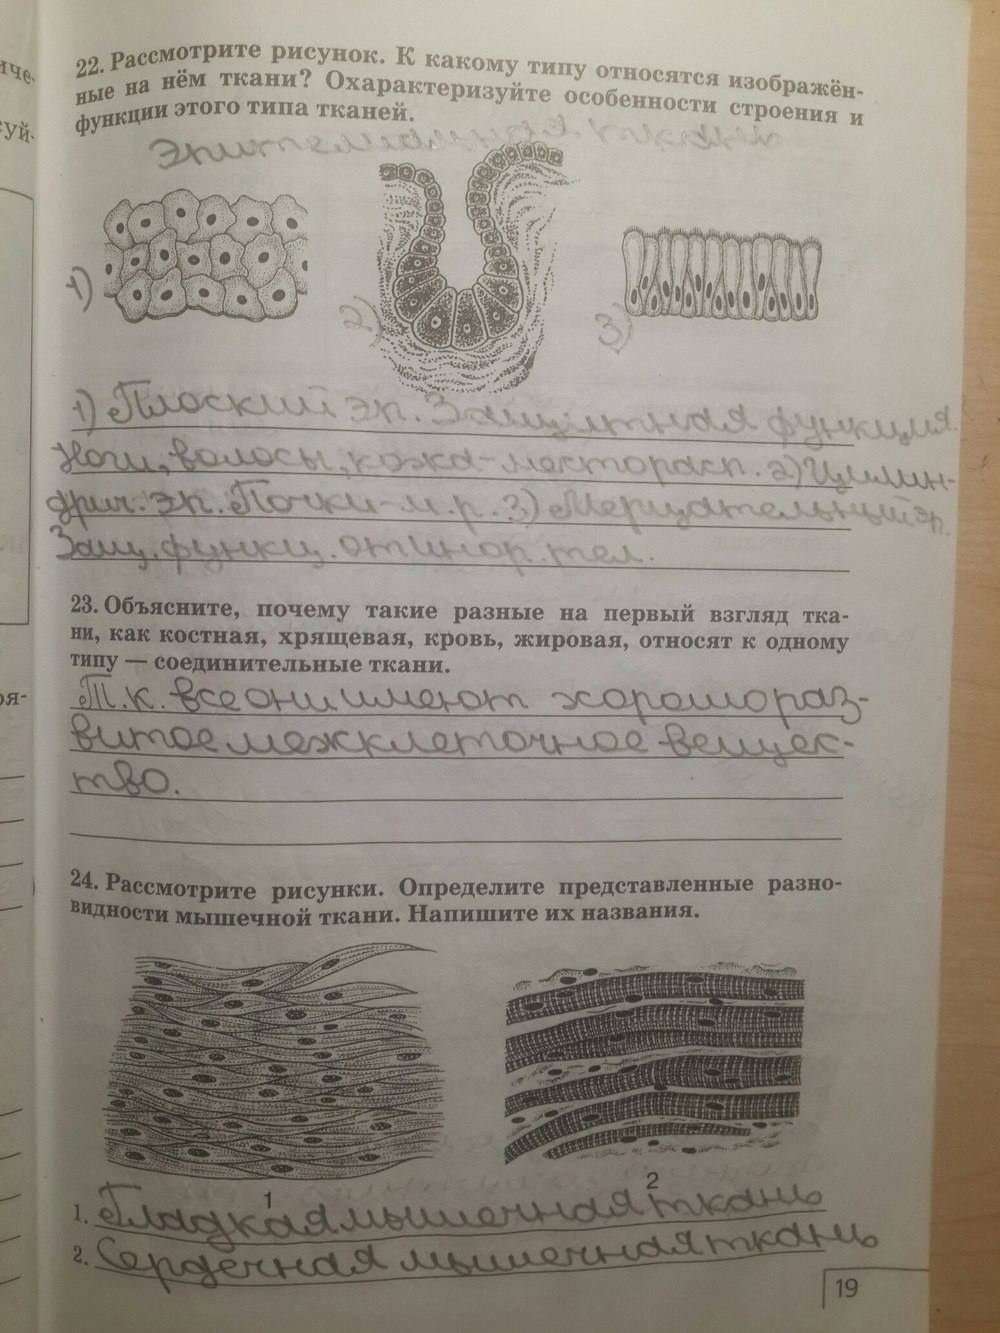 22. Рассмотрите рисунок. К какому типу относятся изображён-
ные на нём ткани? Охарактеризуйте особенности строения и
функции этого типа тканей.
Эпителиальная ткань
1)
2)
3)
1) Плоский эп. Защитная функция.
Ноги, волосы, кожа - месторасп. 2) Цилин-
дрич. эп. Почки - м.р. 3) Мерцательный эп.
Защ. функц. от инор. тел.
23. Объясните, почему такие разные на первый взгляд тка-
ни, как костная, хрящевая, кровь, жировая, относят к одному
типу — соединительные ткани.
Т.к. все они имеют хорошо раз-
витое межклеточное вещес-
тво.
24. Рассмотрите рисунки. Определите представленные разно-
видности мышечной ткани. Напишите их названия.
1
2
1. Гладкая мышечная ткань
2. Сердечная мышечная ткань
19
иче-
суй-
оя-